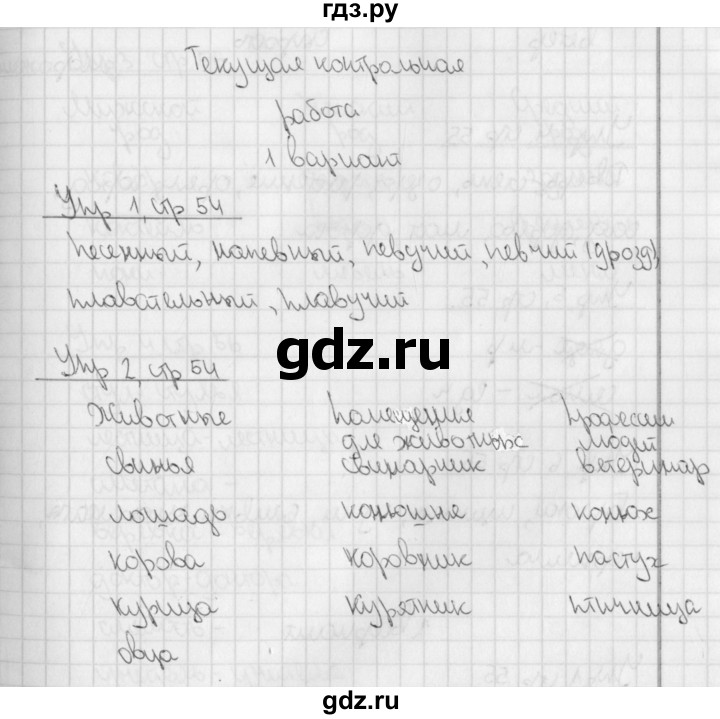 гдз.ру
Текущая контрольная
работа
1 вариант
Упр 1, стр 54
Песенный, напевный, певучий, певчий (дрозд),
плавательный, плавучий
gdz.ru
Упр 2, стр 54
Животные Помещение Профессии
для животных людей
свинья свинарник ветеринар
лошадь конюшня конюх
корова коровник пастух
курица курятник птичница
овца
gdz.ru